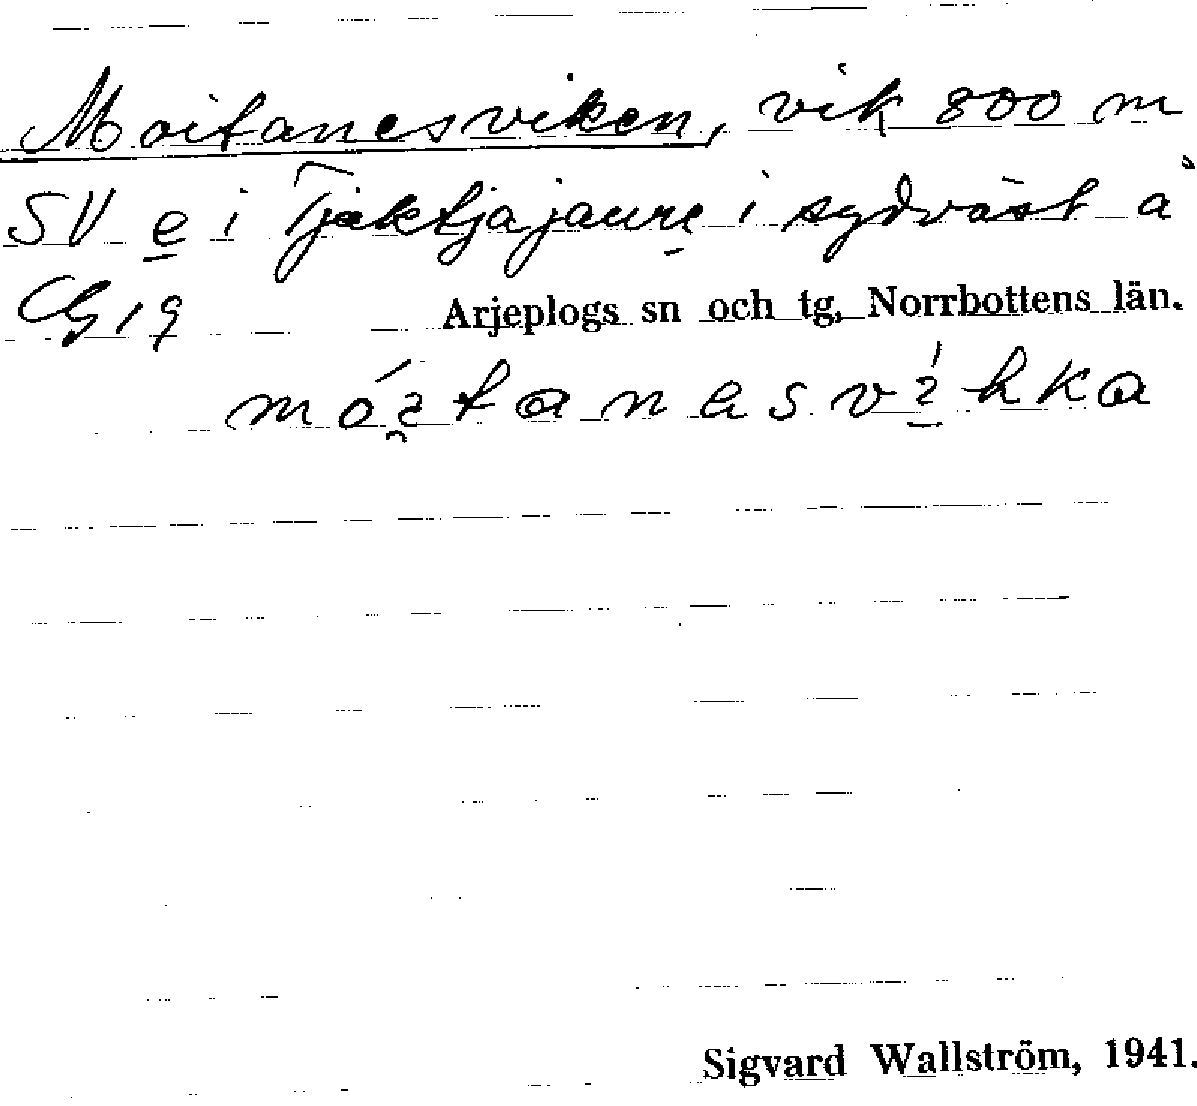 Moitanesviken, vik 800 m
SV e i Tjaktjajaure i sydväst å
G 19 Arjeplogs sn och tg, Norrbottens län.
Sigvard Wallström, 1941.